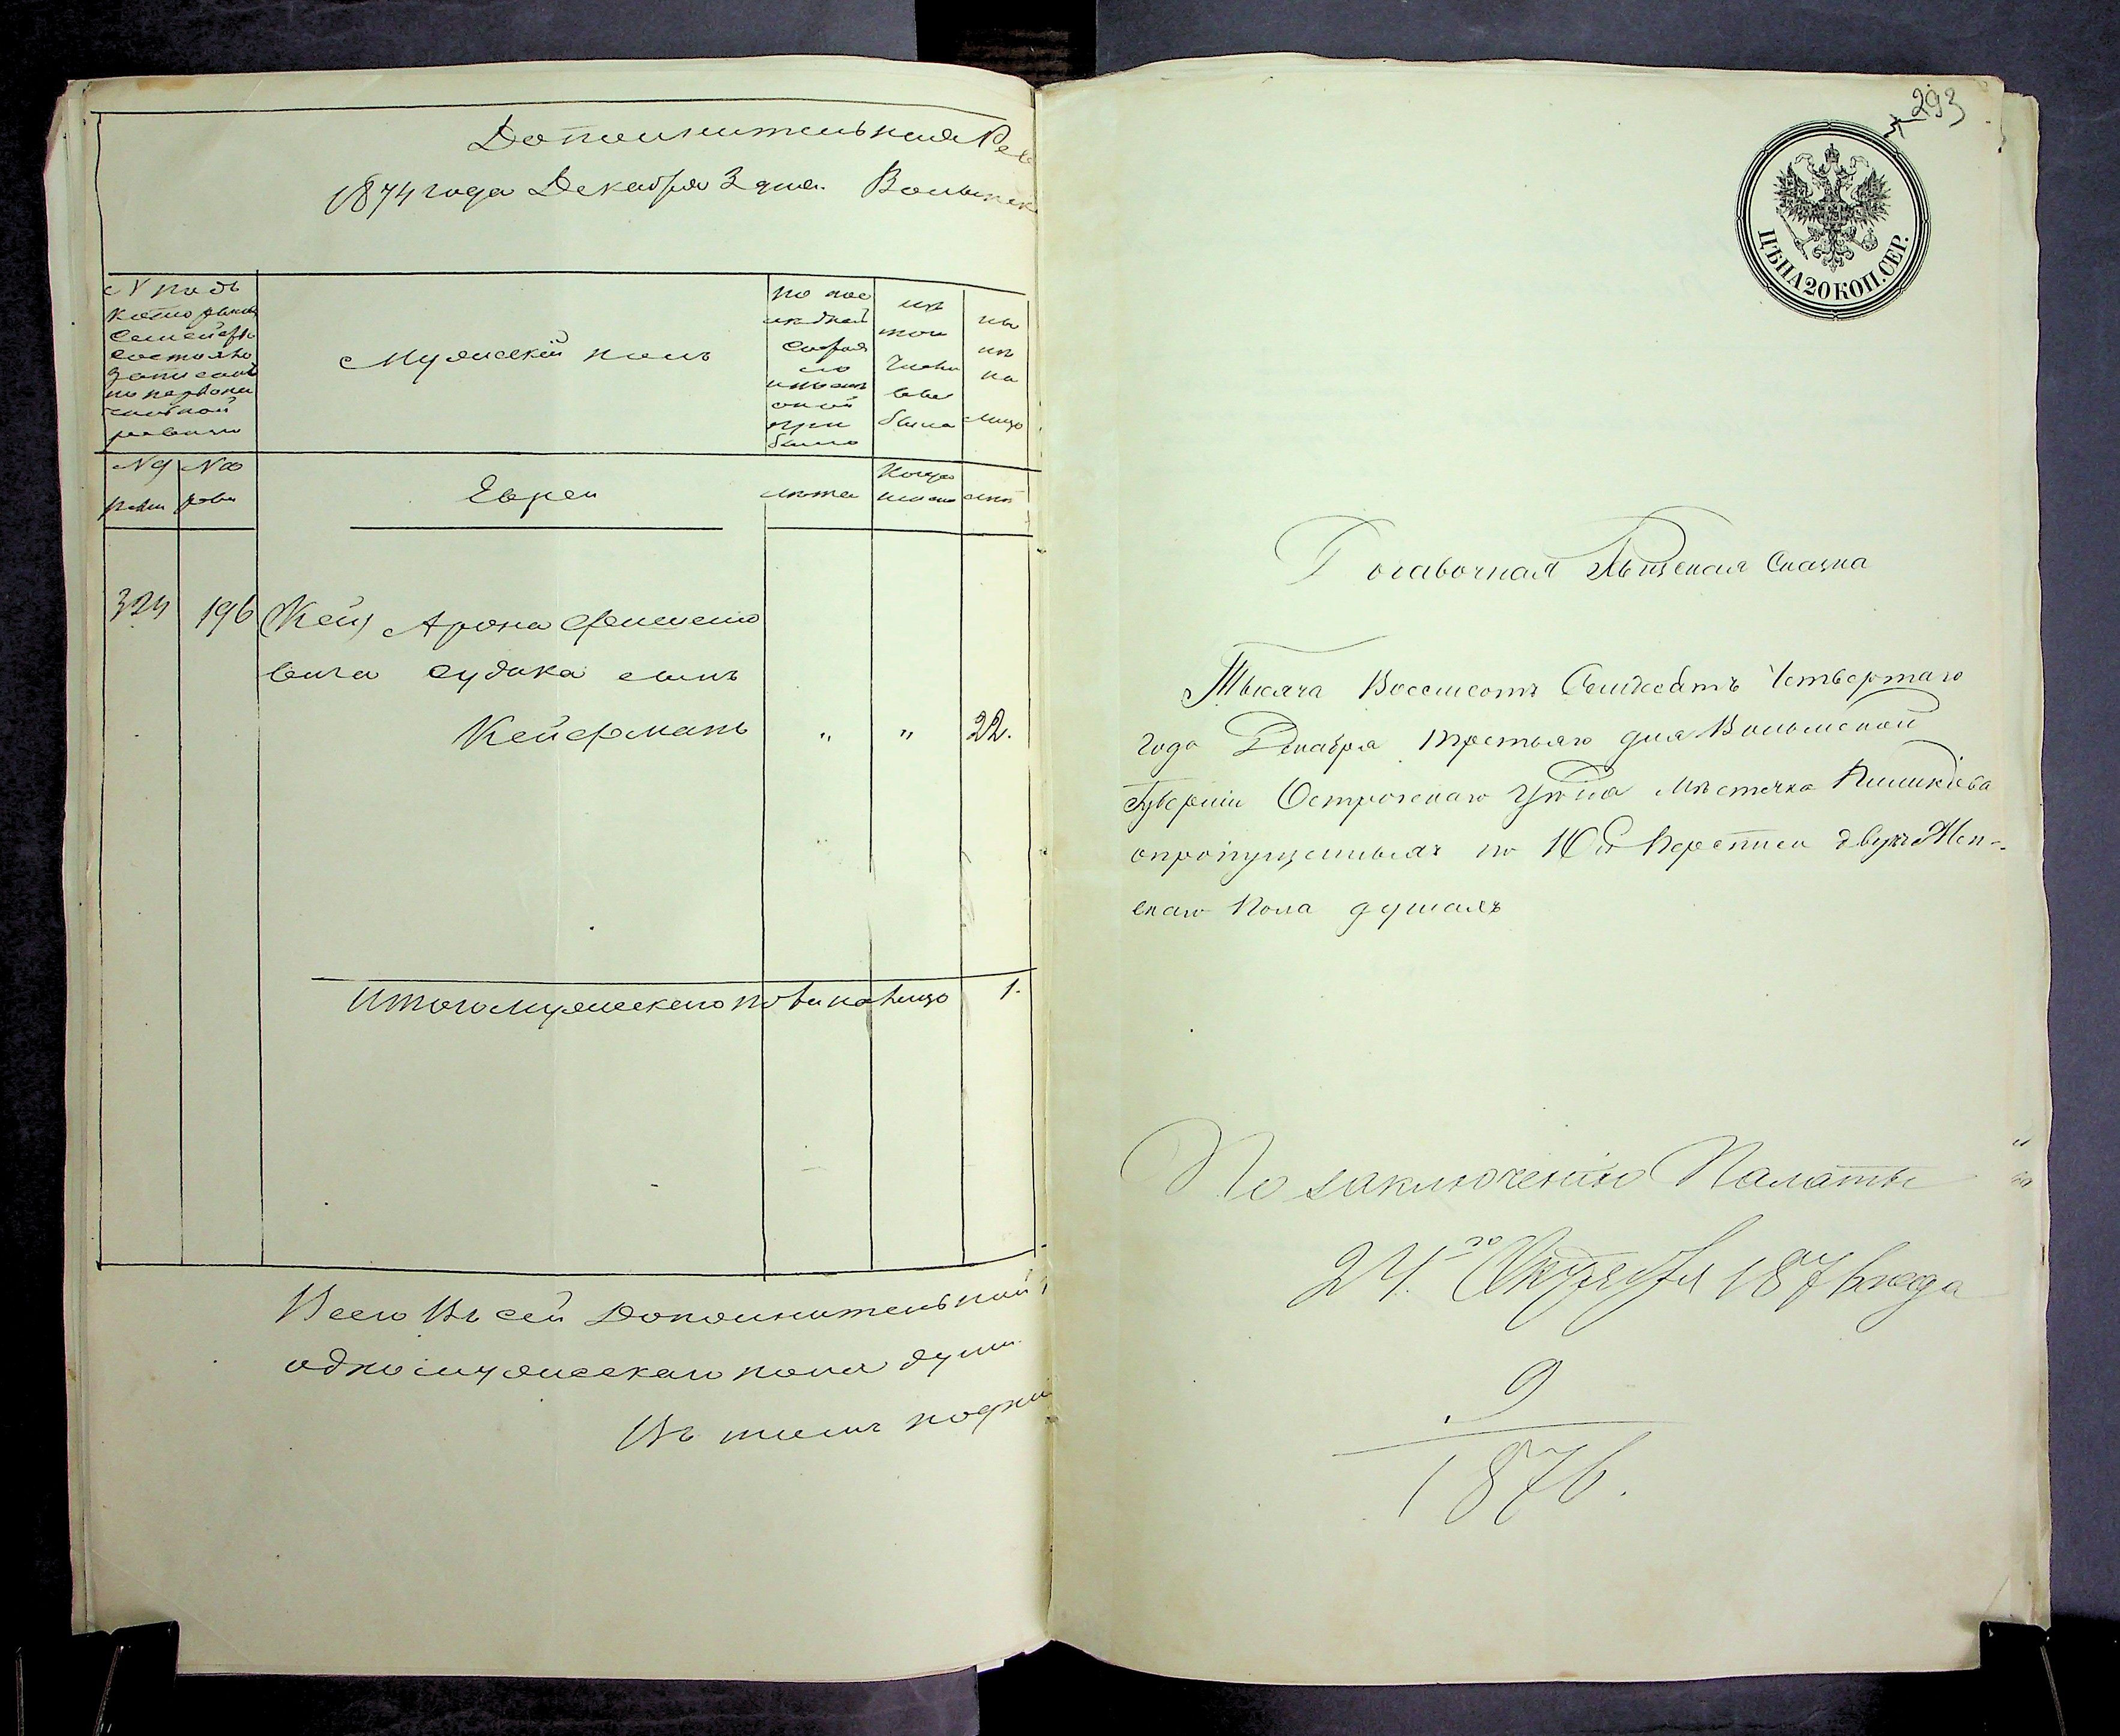 Дополнительная Рев
1874 года Декабря 3 дня. Волынск
№ подъ
которымъ
семейство
состояло
записано
по первона
чальной
ревизіи
Мужескій полъ
по пос
ледней
состоя
ло
и после
оной
при
было
изъ
того
числа
вы
было
ны
не
на
лицо
№ №
Евреи
лета
Когда
именно
лет
324 196 Кейз Арона Фишелио
вича Судика сынъ
Кейсерманъ " " 22.
Итого мужескаго пола на лицо 1.
Всего въ сей Дополнительной
одно мужескаго пола душа
Въ томъ подпи
293
ЦѢНА 20 КОП. СЕР.
Добавочная Ревизская Сказка
Тысяча Восемсотъ Семдесятъ Четвертаго
года Декабря третьяго дня Волынской
Губерніи Острожскаго Уезда Местечка
о пропущенныхъ по 10й Переписи двухъ Жен-
скаго Пола душахъ
По заключенію Палаты
24.го Октября 1876 года
9
1876.